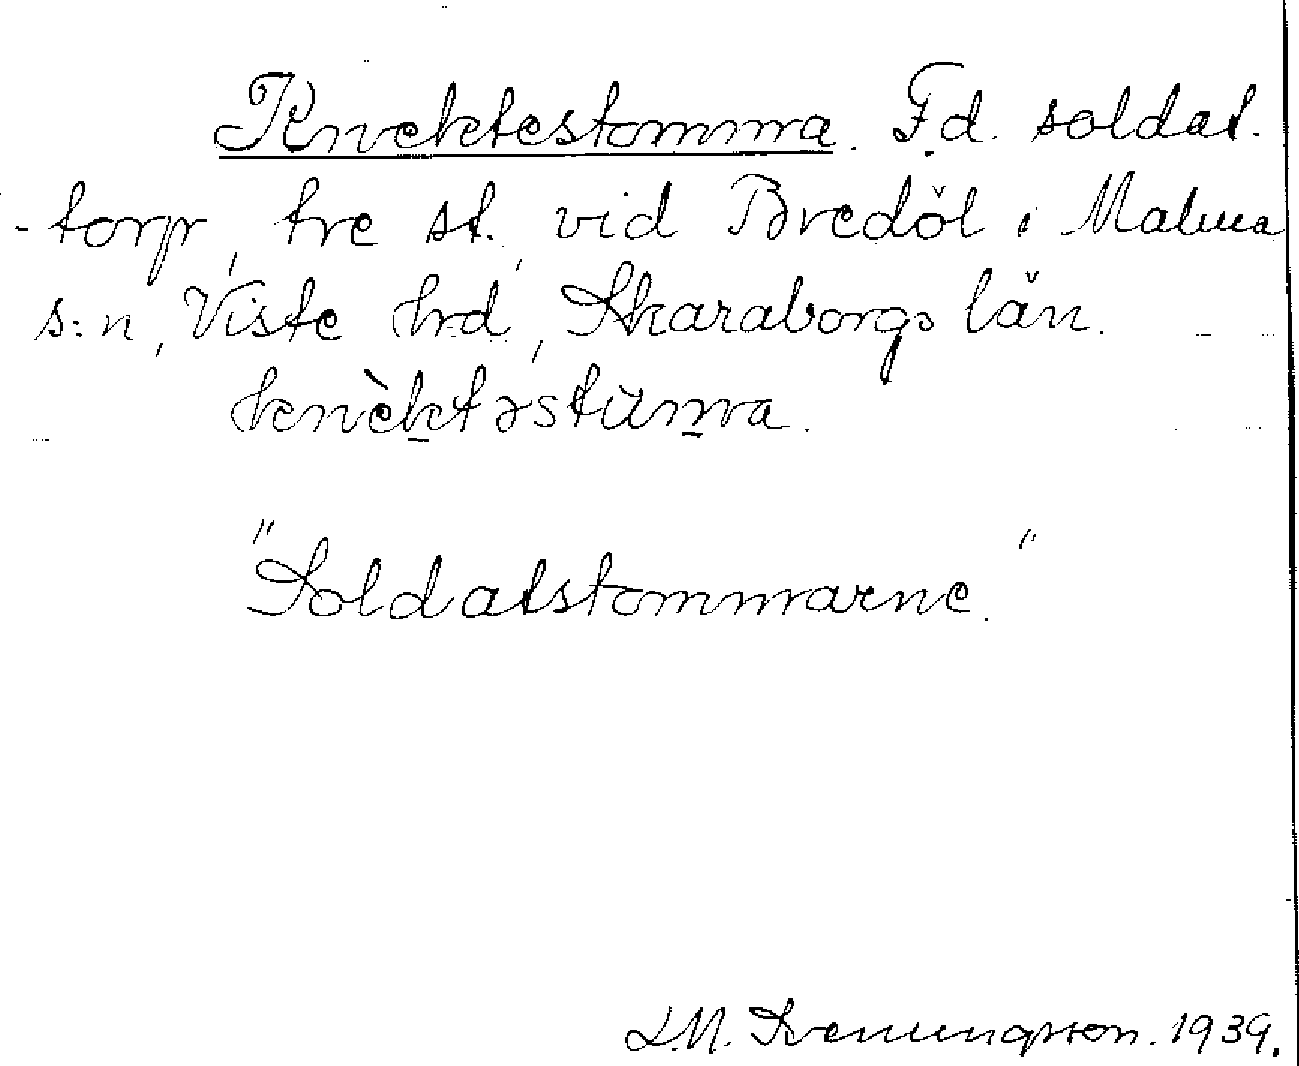 Knektestomma. F.d. soldat-
-torp, tre st. vid Bredöl i Malma
s:n, Viste hrd, Skaraborgs län.
knèktəstuma.
"Soldatstommarne."
L.M. Svenungsson. 1939.